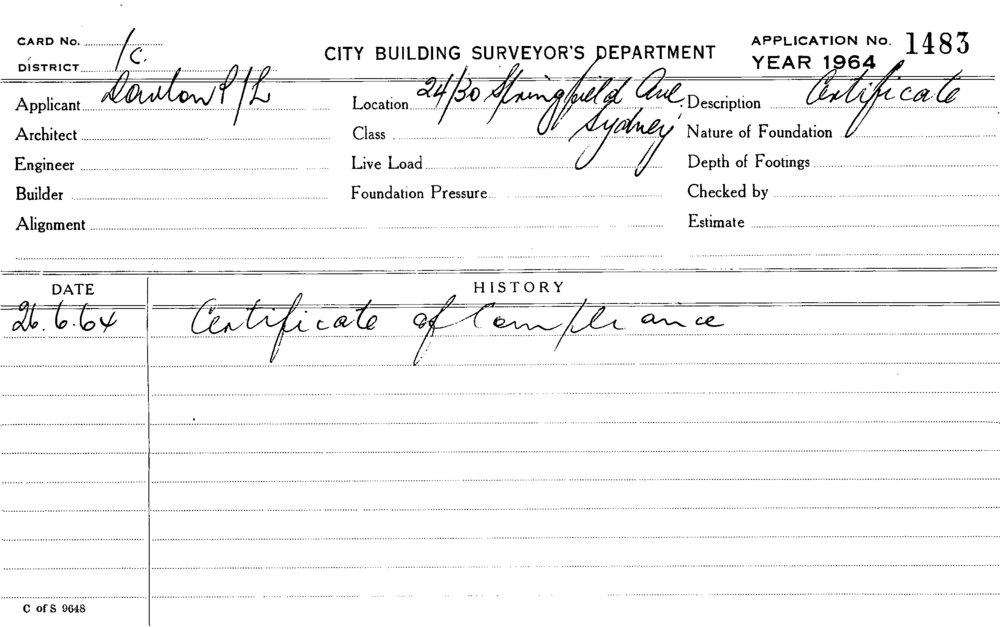 CARD No. 1c.
CITY BUILDING SURVEYOR'S DEPARTMENT
APPLICATION No. 1483
DISTRICT
YEAR 1964
Applicant P/L
Location 24/30 Springfield Ave, Sydney
Description Certificate
Architect
Class
Nature of Foundation
Engineer
Live Load
Depth of Footings
Builder
Foundation Pressure
Checked by
Alignment
Estimate
DATE
HISTORY
26.6.64 Certificate of Compliance
C of S 9648